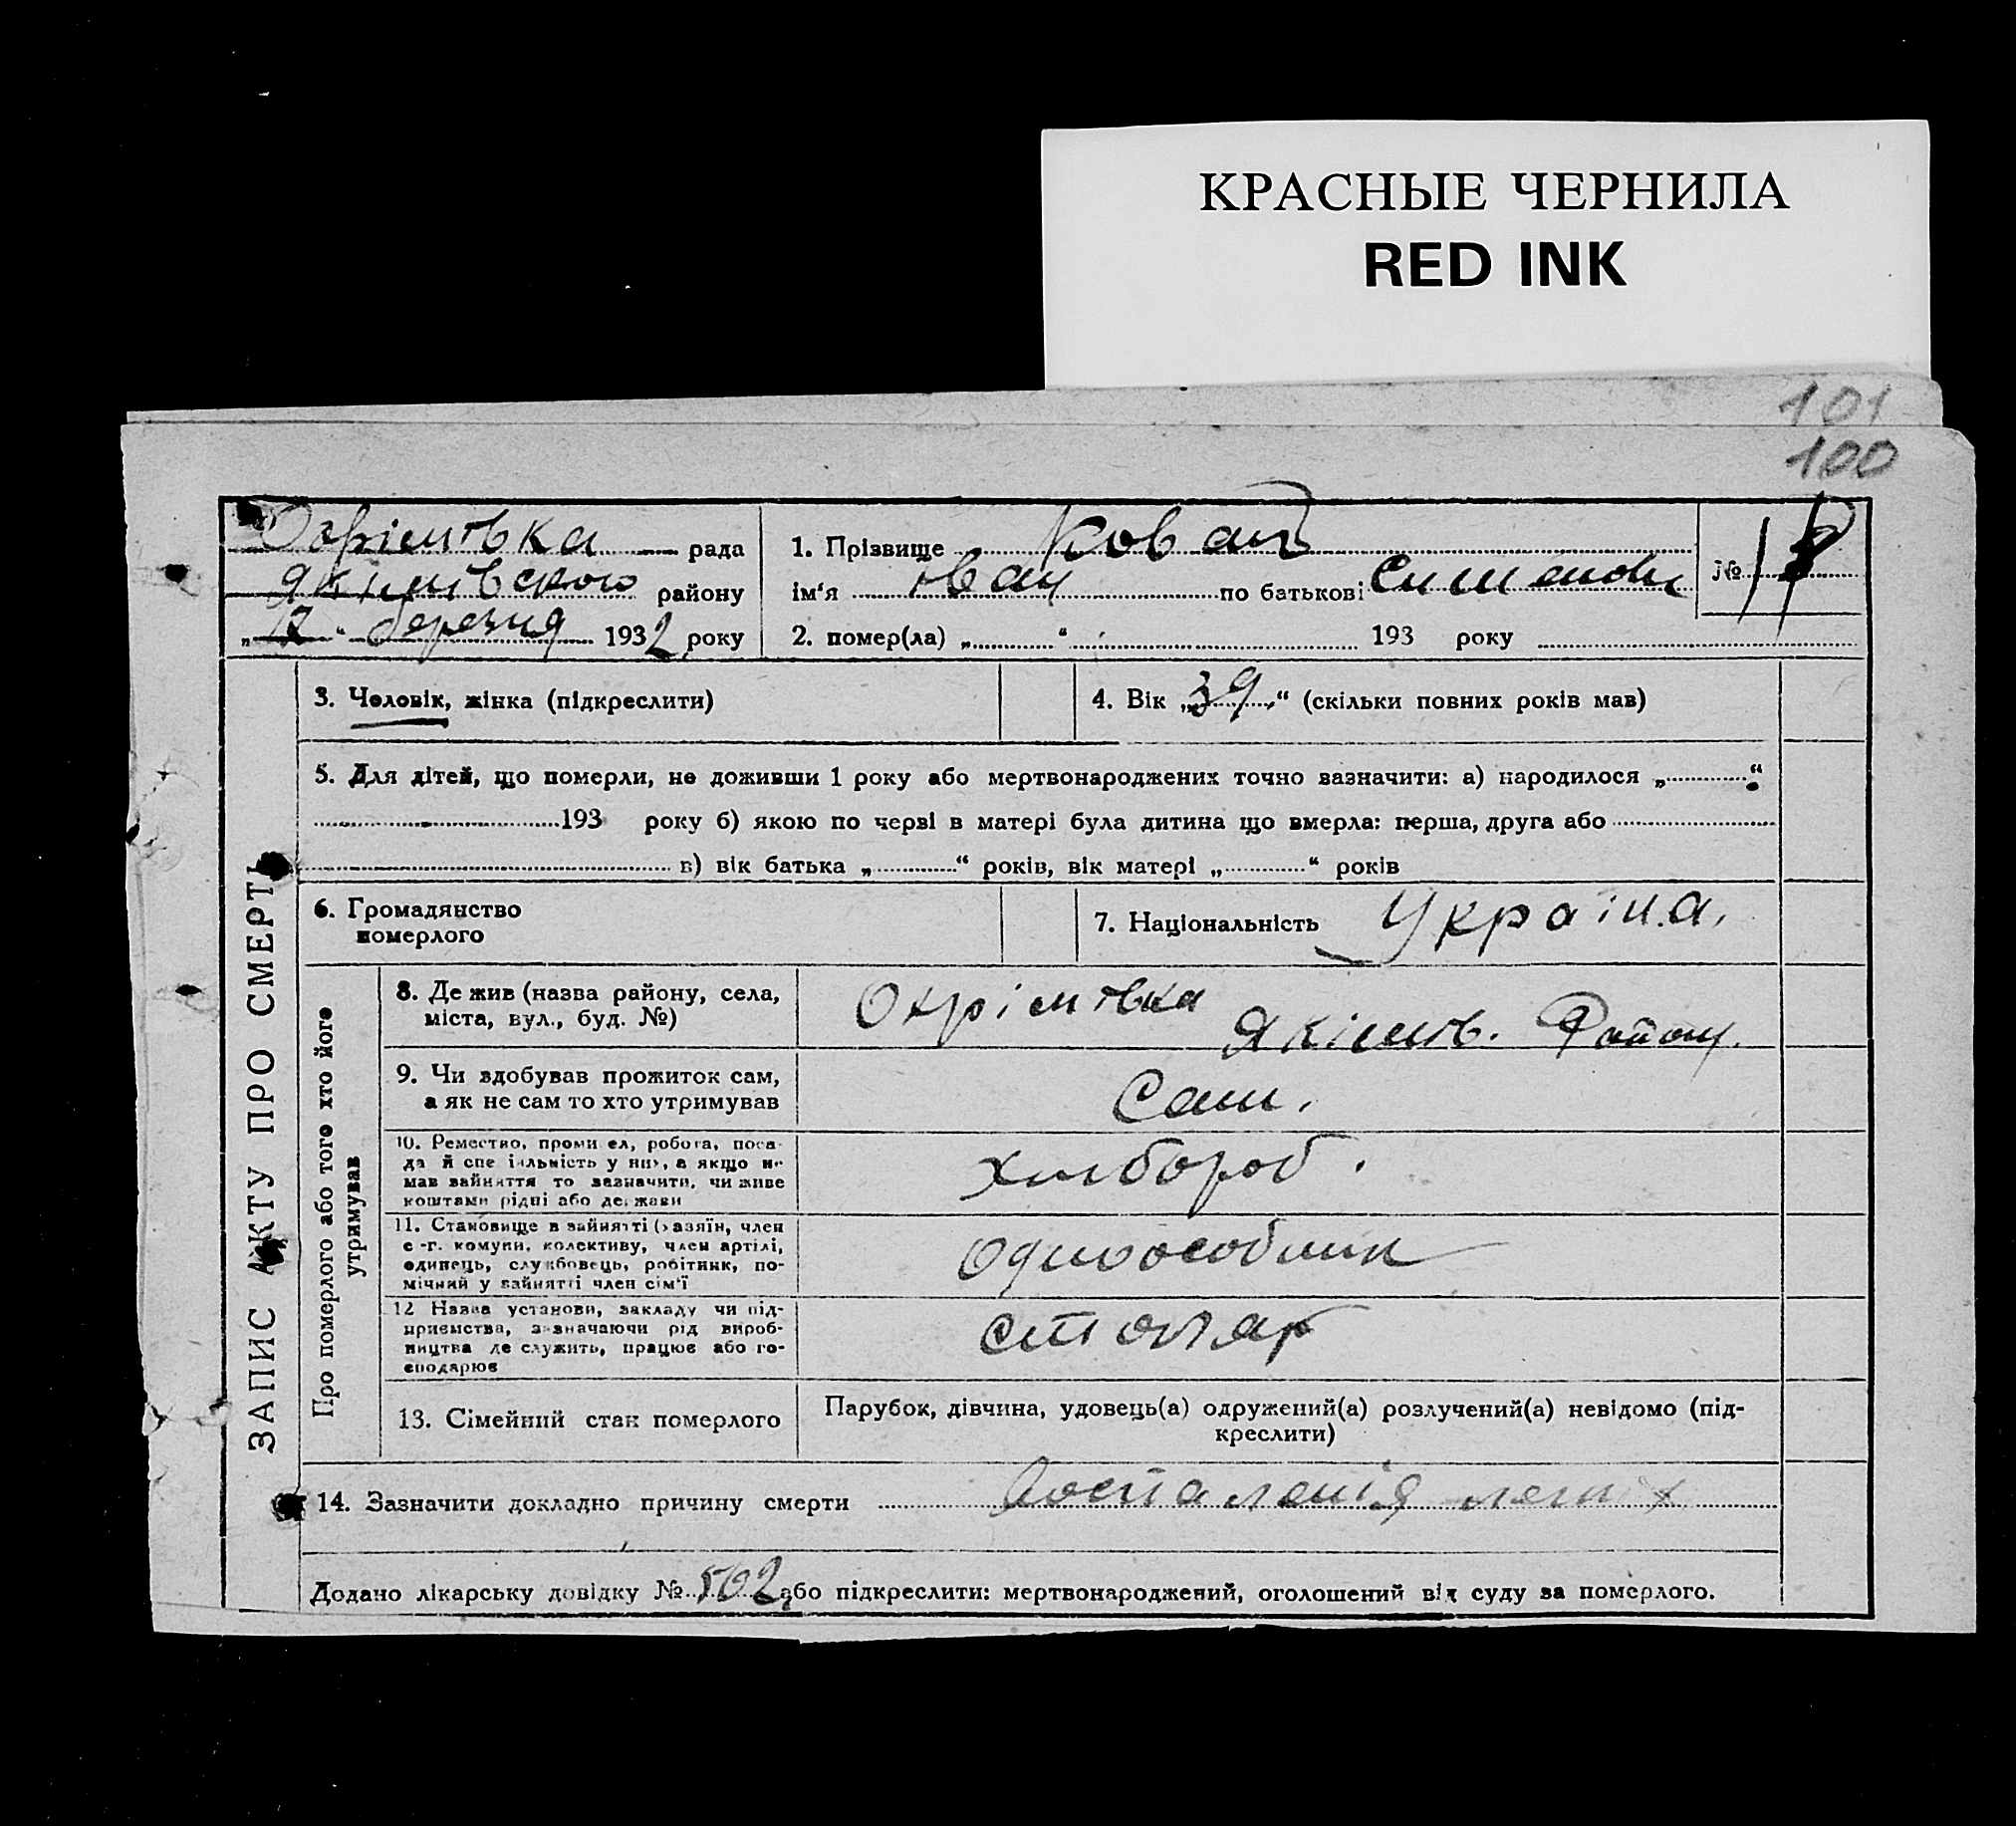 КРАСНЫЕ ЧЕРНИЛА
RED INK
101
100
Охрімовка рада
Якімівского району
„12“ березня 1932 року
1. Прізвище
ім‘я Іван по батькові
№
2. помер(ла) „ “ 193 року
ЗАПИС АКТУ ПРО СМЕРТЬ
3. Чоловік, жінка (підкреслити)
4. Вік „39“ (скільки повних років мав)
5. Для дітей, що померли, не доживши 1 року або мертвонароджених точно вазначити: а) народилося „ “
193 року б) якою по черві в матері була дитина що вмерла: перша, друга або
в) вік батька „ “ років, вік матері „ “ років
6. Громадянство померлого
7. Національність Україн.а.
Про померлого або того хто його утримував
8. Де жив (назва району, села,
міста, вул., буд. №)
Охрімовка Якімов. Район.
9. Чи здобував прожиток сам,
а як не сам то хто утримував
Сам.
10. Ремество, промисел, робота, поса-
да й спеціяльність у них, а якщо не
мав зайняття то зазначити, чи живе
коштами рідні або держави
хлібороб.
11. Становище в зайнятті (хазяїн, член
с.-г. комуни, колективу, член артілі,
одинець, службовець, робітник, по-
мічний у зайнятті член сім‘ї
одноособник
12 Назва установи, закладу чи під-
приємства, зазначаючи рід вироб-
ництва де служить, працює або го-
сподарює
столяр
13. Сімейний стан померлого
Парубок, дівчина, удовець(а) одружений(а) розлучений(а) невідомо (під-
креслити)
14. Зазначити докладно причину смерти Воспаленія легких
Додано лікарську довідку № 502 або підкреслити: мертвонароджений, оголошений від суду за померлого.